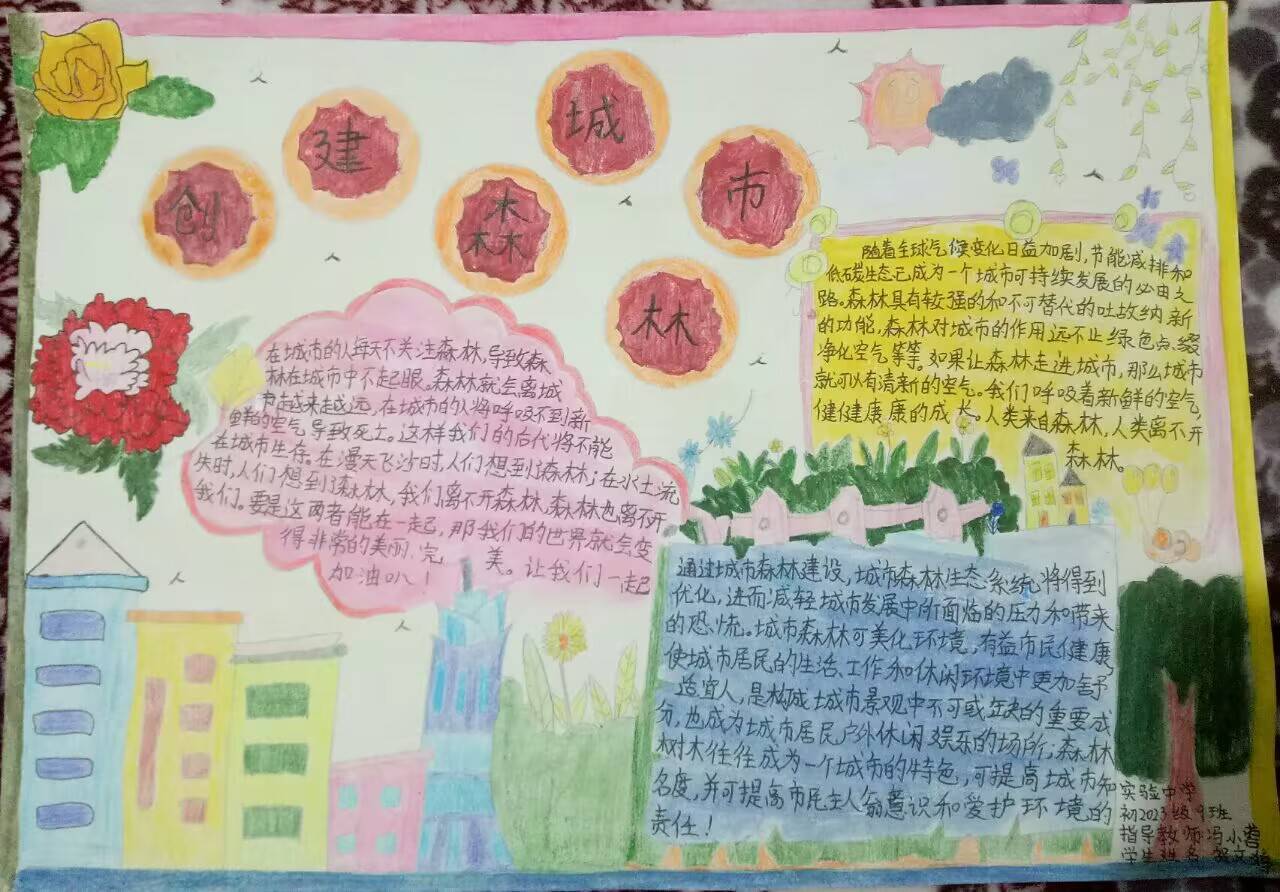 创建森林城市
在城市的人每天不关注森林,导致森
林在城市中不起眼。森林就会离城
市越来越远,在城市的人将呼吸不到新
鲜的空气导致死亡。这样我们的后代将不能
在城市生存。在漫天飞沙时,人们想到森林;在水土流
失时,人们想到森林,我们离不开森林,森林也离不开
我们。要是这两者能在一起,那我们的世界就会变
得非常的美丽.完美。让我们一起
加油叭!
随着全球气候变化日益加剧,节能减排和
低碳生态已成为一个城市可持续发展的必由之
路。森林具有较强的和不可替代的吐故纳新
的功能,森林对城市的作用远不止绿色点缀
净化空气等等。如果让森林走进城市,那么城市
就可以有清新的空气。我们呼吸着新鲜的空气,
健健康康的成长。人类来自森林,人类离不开
森林。
通过城市森林建设,城市森林生态系统将得到
优化,进而减轻城市发展中所面临的压力和带来
的恐慌。城市森林可美化环境,有益市民健康,
使城市居民的生活、工作和休闲环境中更加舒
适宜人,是构成城市景观中不可或缺的重要成
分,也成为城市居民户外休闲娱乐的场所;森林
树木往往成为一个城市的特色,可提高城市知
名度,并可提高市民主人翁意识和爱护环境的
责任!
实验中学
初2023级9班
指导教师冯小
学生姓名